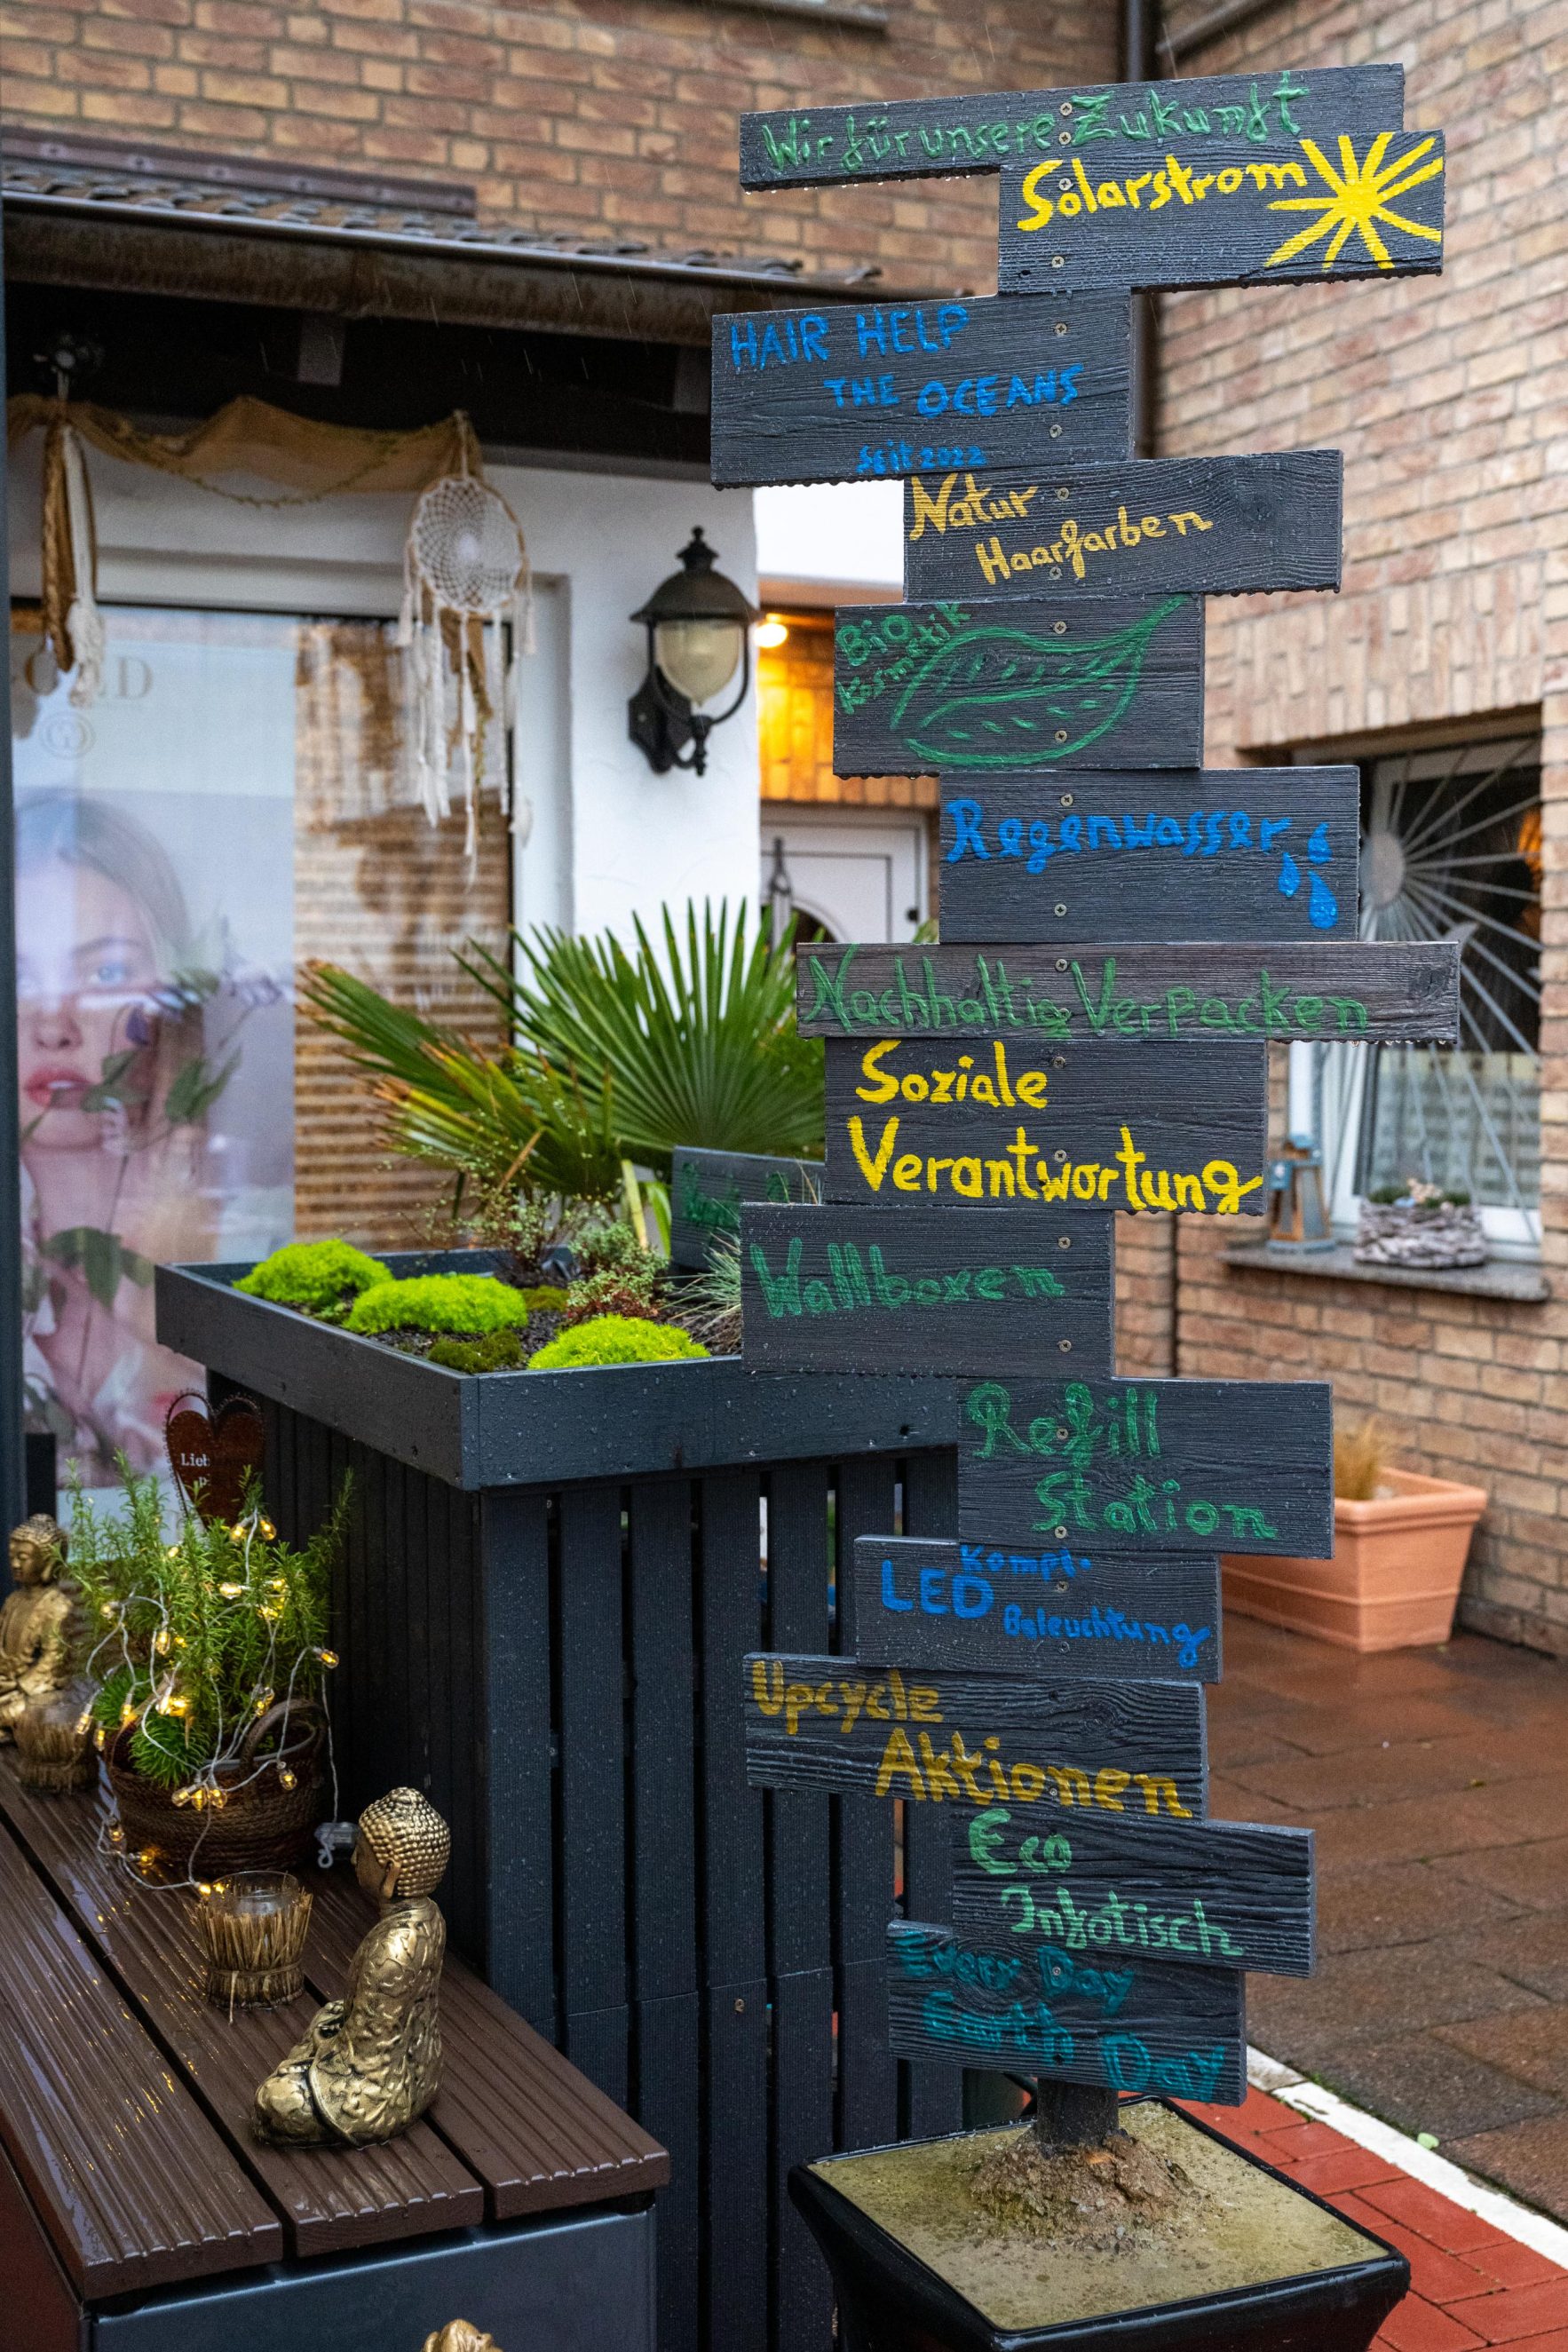 Wir für unsere Zukunft
Solarstrom
HAIR HELP
THE OCEANS
seit 2022
Natur
Haarfarben
Bio
Kosmetik
Regenwasser
Nachhaltig Verpacken
Soziale
Verantwortung
Wallboxen
Refill
Station
Kompl.
LED
Beleuchtung
Upcycle
Aktionen
Eco
Inkotisch
Every Day
Earth Day